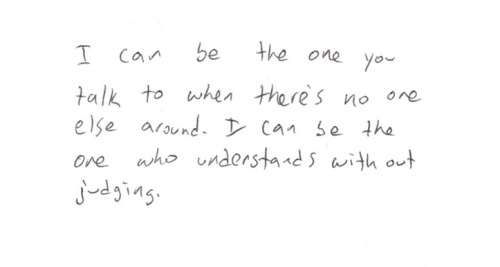 I can be the one you
talk to when there's no one
else around. I can be the
one who understands with out
judging.